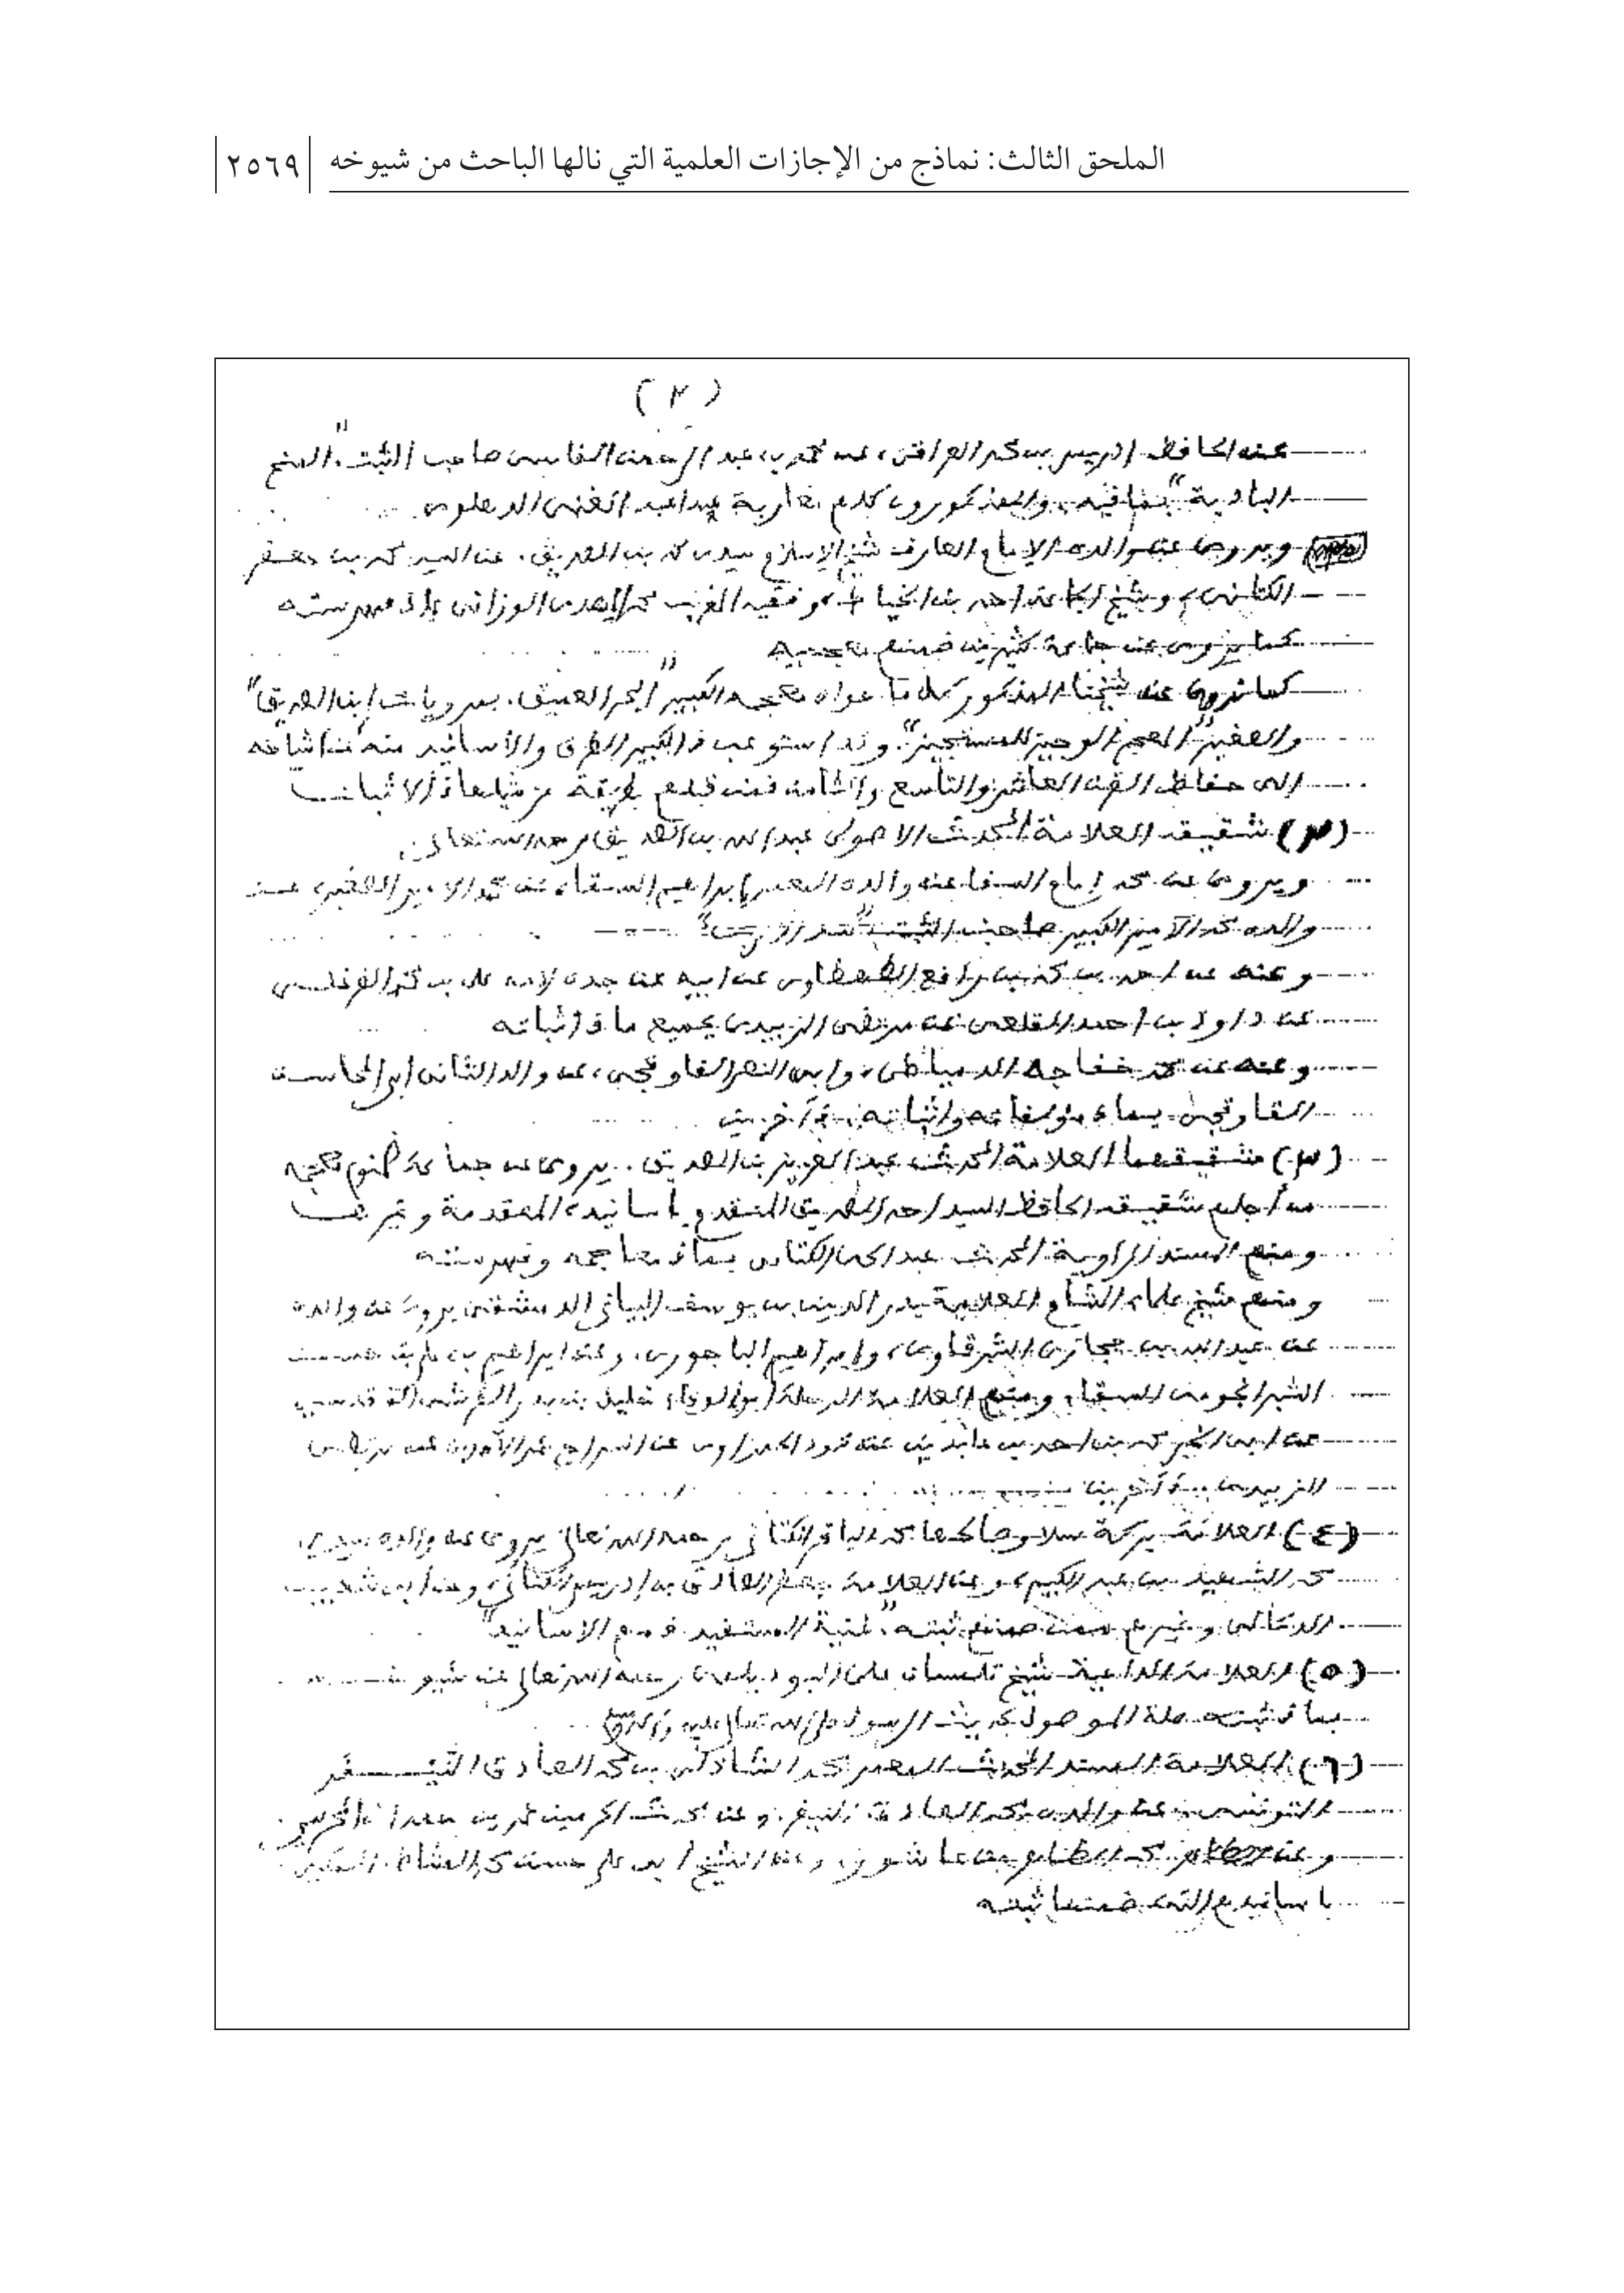 الملحق الثالث: نماذج من الإجازات العلمية التي نالها الباحث من شيوخه
٢٥٦٩
(٢)
عن الحافظ ادريس بن محمد العراقي، عن محمد بن عبد الرحمن الفاسي صاحب الثبت "المنح
البادية" بما فيه، والمذكورون كلهم مغاربة عدا عبد الغني الدهلوي
ويروي عن والده الإمام العارف شيخ الإسلام سيدي محمد بن الصديق، عن السيد محمد بن جعفر
الكتاني، وشيخ الجماعة احمد بن الخياط، وفقيه الغرب محمد المهدي الوزاني بما في فهرسته
كما يروي عن جماعة كثيرين ضمنهم معجميه
كما نروي عن شيخنا المذكور كل ما حواه معجمه الكبير "البحر العميق، بمرويات ابن الصديق"
والصغير "المعجم الوجيز للمستجيز". وقد استوعب في الكبير الطرق والأسانيد منه ومن اشياخه
إلى حفاظ القرن العاشر والتاسع والثامن فمن قبلهم بطريقة عز مثيلها في الأثبات
(٢) شقيقه العلامة المحدث الاصولي عبد الله بن الصديق رحمه الله تعالى
ويروي عن محمد إمام السقا عن والده المعمر إبراهيم السقاء عن محمد الامير الصغير عن
والده محمد الأمير الكبير صاحب الثبت "سد الأرب"
وعنه عن احمد بن محمد بن رافع الطهطاوي عن ابيه عن جده لامه علي بن محمد الفرغلي
عن داود بن احمد القلعي عن مرتضى الزبيدي بجميع ما في اثباته
وعنه عن محمد خفاجه الدمياطي، وابي النصر القاوقجي، عن والد الثاني ابي المحاسن
القاوقجي بما في مؤلفاته واثباته، في آخرين
(٣) شقيقهما العلامة المحدث عبد العزيز بن الصديق.. يروي عن جماعة ضمنهم معجمه
من أجلهم شقيقه الحافظ السيد احمد الصديق المتقدم باسانيده المتقدمة وغيرها
ومنهم المسند الراوية المحدث عبد الحي الكتاني بما في معاجمه وفهرسته
ومنهم شيخ علماء الشام العلامة بدر الدين بن يوسف البياني الدمشقي يروي عن والده
عن عبد الله بن حجازي الشرقاوي، وإبراهيم الباجوري، وعن إبراهيم بن علي بن حسن
الشبرانجومي السقاء ومنهم العلامة الرحلة أبو الوفاء خليل بن بدر الخالدي المقدسي
عن ابي الخير محمد بن احمد بن عابدين عن محمود الحمزاوي عن السراج عمر الآمدي عن مرتضى
الزبيدي في آخرين
(٤) العلامة بركة سلا وصالحها محمد الباقر الكتاني رحمه الله تعالى يروي عن والده سيدي
محمد الشهيد بن عبد الكبير، وعن العلامة جعفر الصادق بن إدريس الكتاني، وعن أبي شعيب
الدكالي وغيرهم ممن ضمنهم ثبته "غنية المستفيد في مهم الاسانيد"
(٥) العلامة الداعية شيخ تلمسان علي البوديلمي رحمه الله تعالى عن شيوخه
بما في ثبته صلة الموصول بحديث الرسول صلى الله تعالى عليه وآله وسلم
(٦) العلامة المسند المحدث المعمر محمد الشاذلي بن محمد الصادق النيفر
التونسي عن والده محمد الصادق النيفر، وعن محدث الحرمين عمر بن حمدان المحرسي
وعن محمد الطاهر بن عاشور، وعن الشيخ ابي علي حسن محمد المشاط المكي
باسانيدهم التي ضمنها ثبته